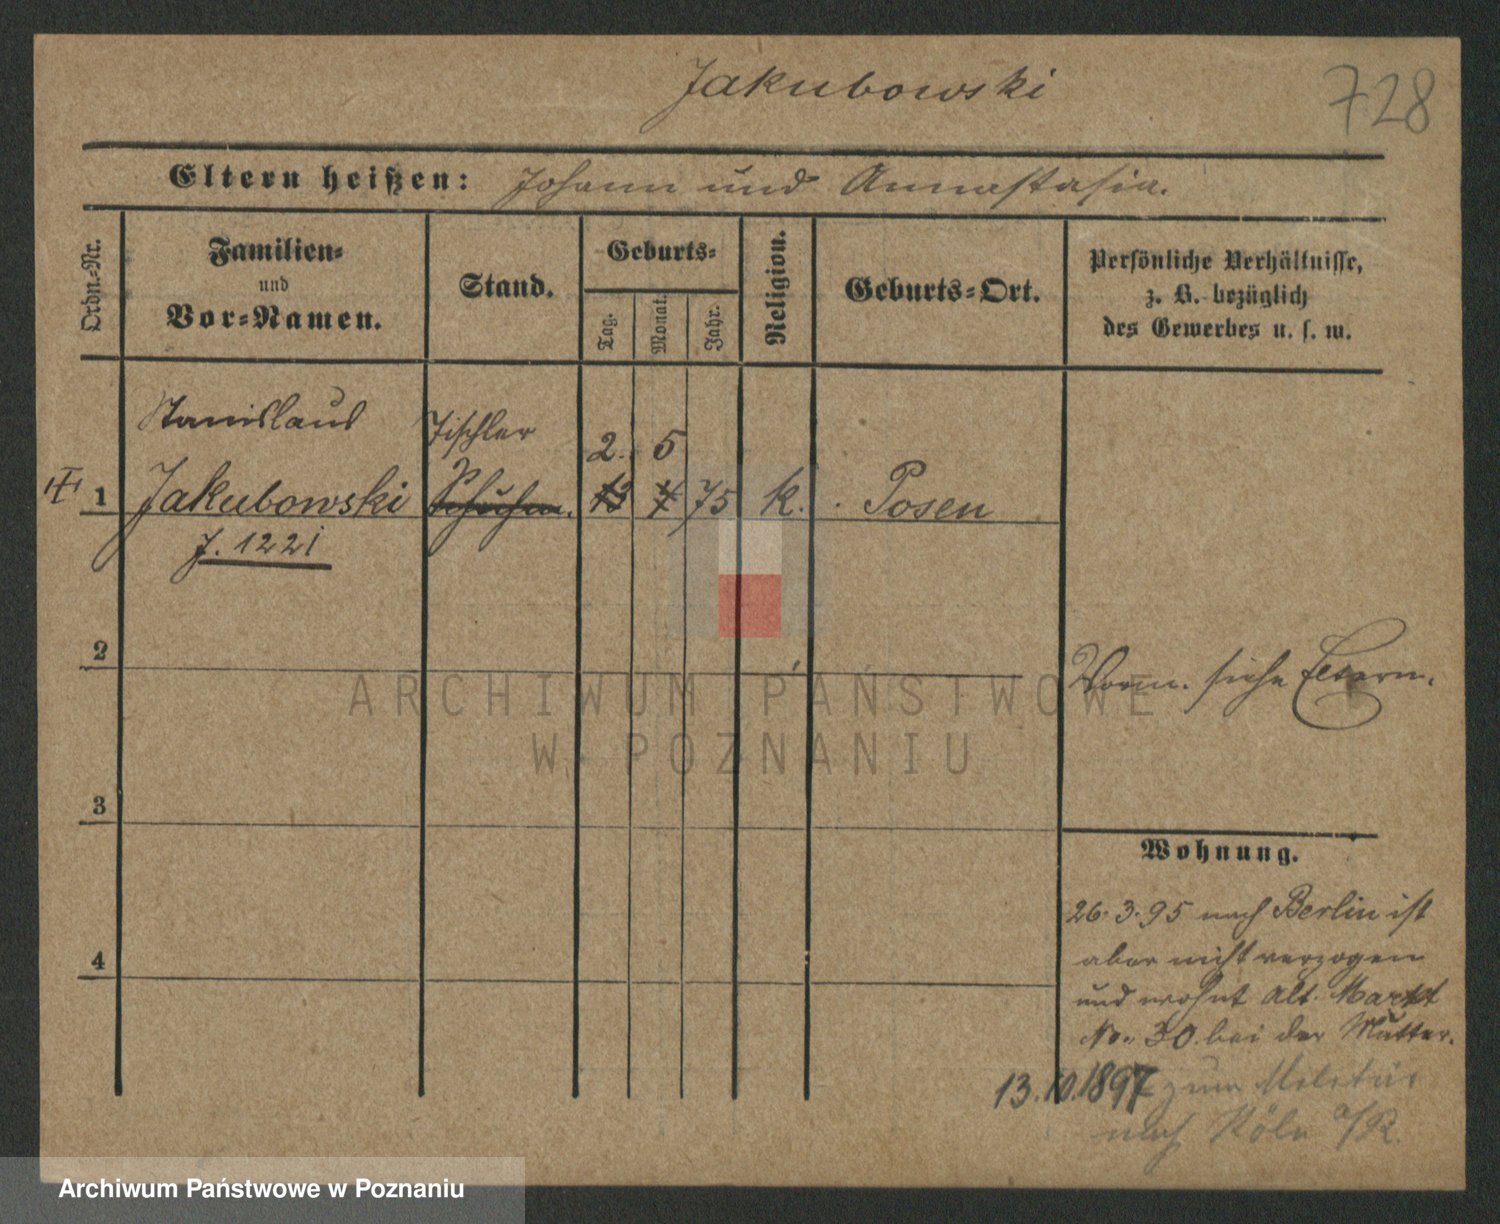 Jakubowski
728
Eltern heißen: Johann und Annastasia.
Ordn.-Nr.
Familien-
und
Vor-Namen.
Stand.
Geburts-
Tag.
Monat.
Jahr.
Religion.
Geburts-Ort.
Persönliche Verhältnisse,
z. B. bezüglich
des Gewerbes u. s. w.
Stanislaus
Tischler
2. 5
1 Jakubowski Schuhm. 13 4 75 k. Posen
J. 1221
2
Vorm. siehe Eltern.
ARCHIWUM PAŃSTWOWE
W POZNANIU
3
Wohnung.
26.3.95 nach Berlin ist
aber nicht verzogen
und wohnt Alt. Markt
No. 30. bei der Mutter.
4
13.10.1897 zum Militär
nach Köln a/R.
Archiwum Państwowe w Poznaniu